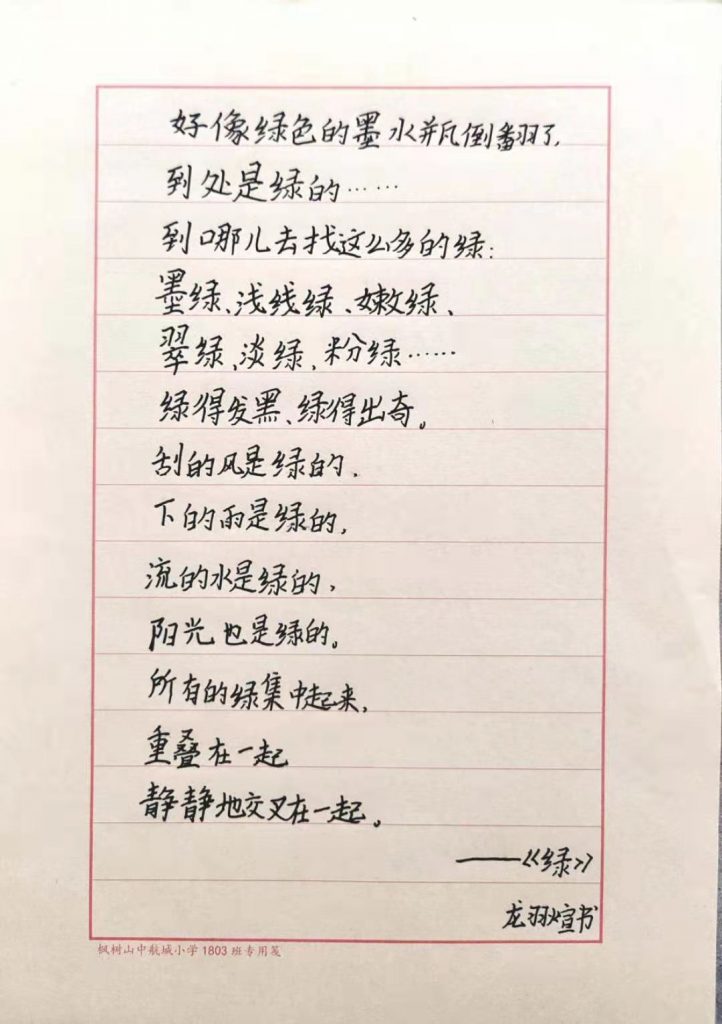 好像绿色的墨水瓶倒翻了,
到处是绿的……
到哪儿去找这么多的绿:
墨绿、浅线绿、嫩绿、
翠绿、淡绿、粉绿……
绿得发黑、绿得出奇。
刮的风是绿的,
下的雨是绿的,
流的水是绿的,
阳光也是绿的。
所有的绿集中起来,
重叠在一起
静静地交叉在一起。
——《绿》
龙羽煊书
枫树山中航城小学1803班专用笺